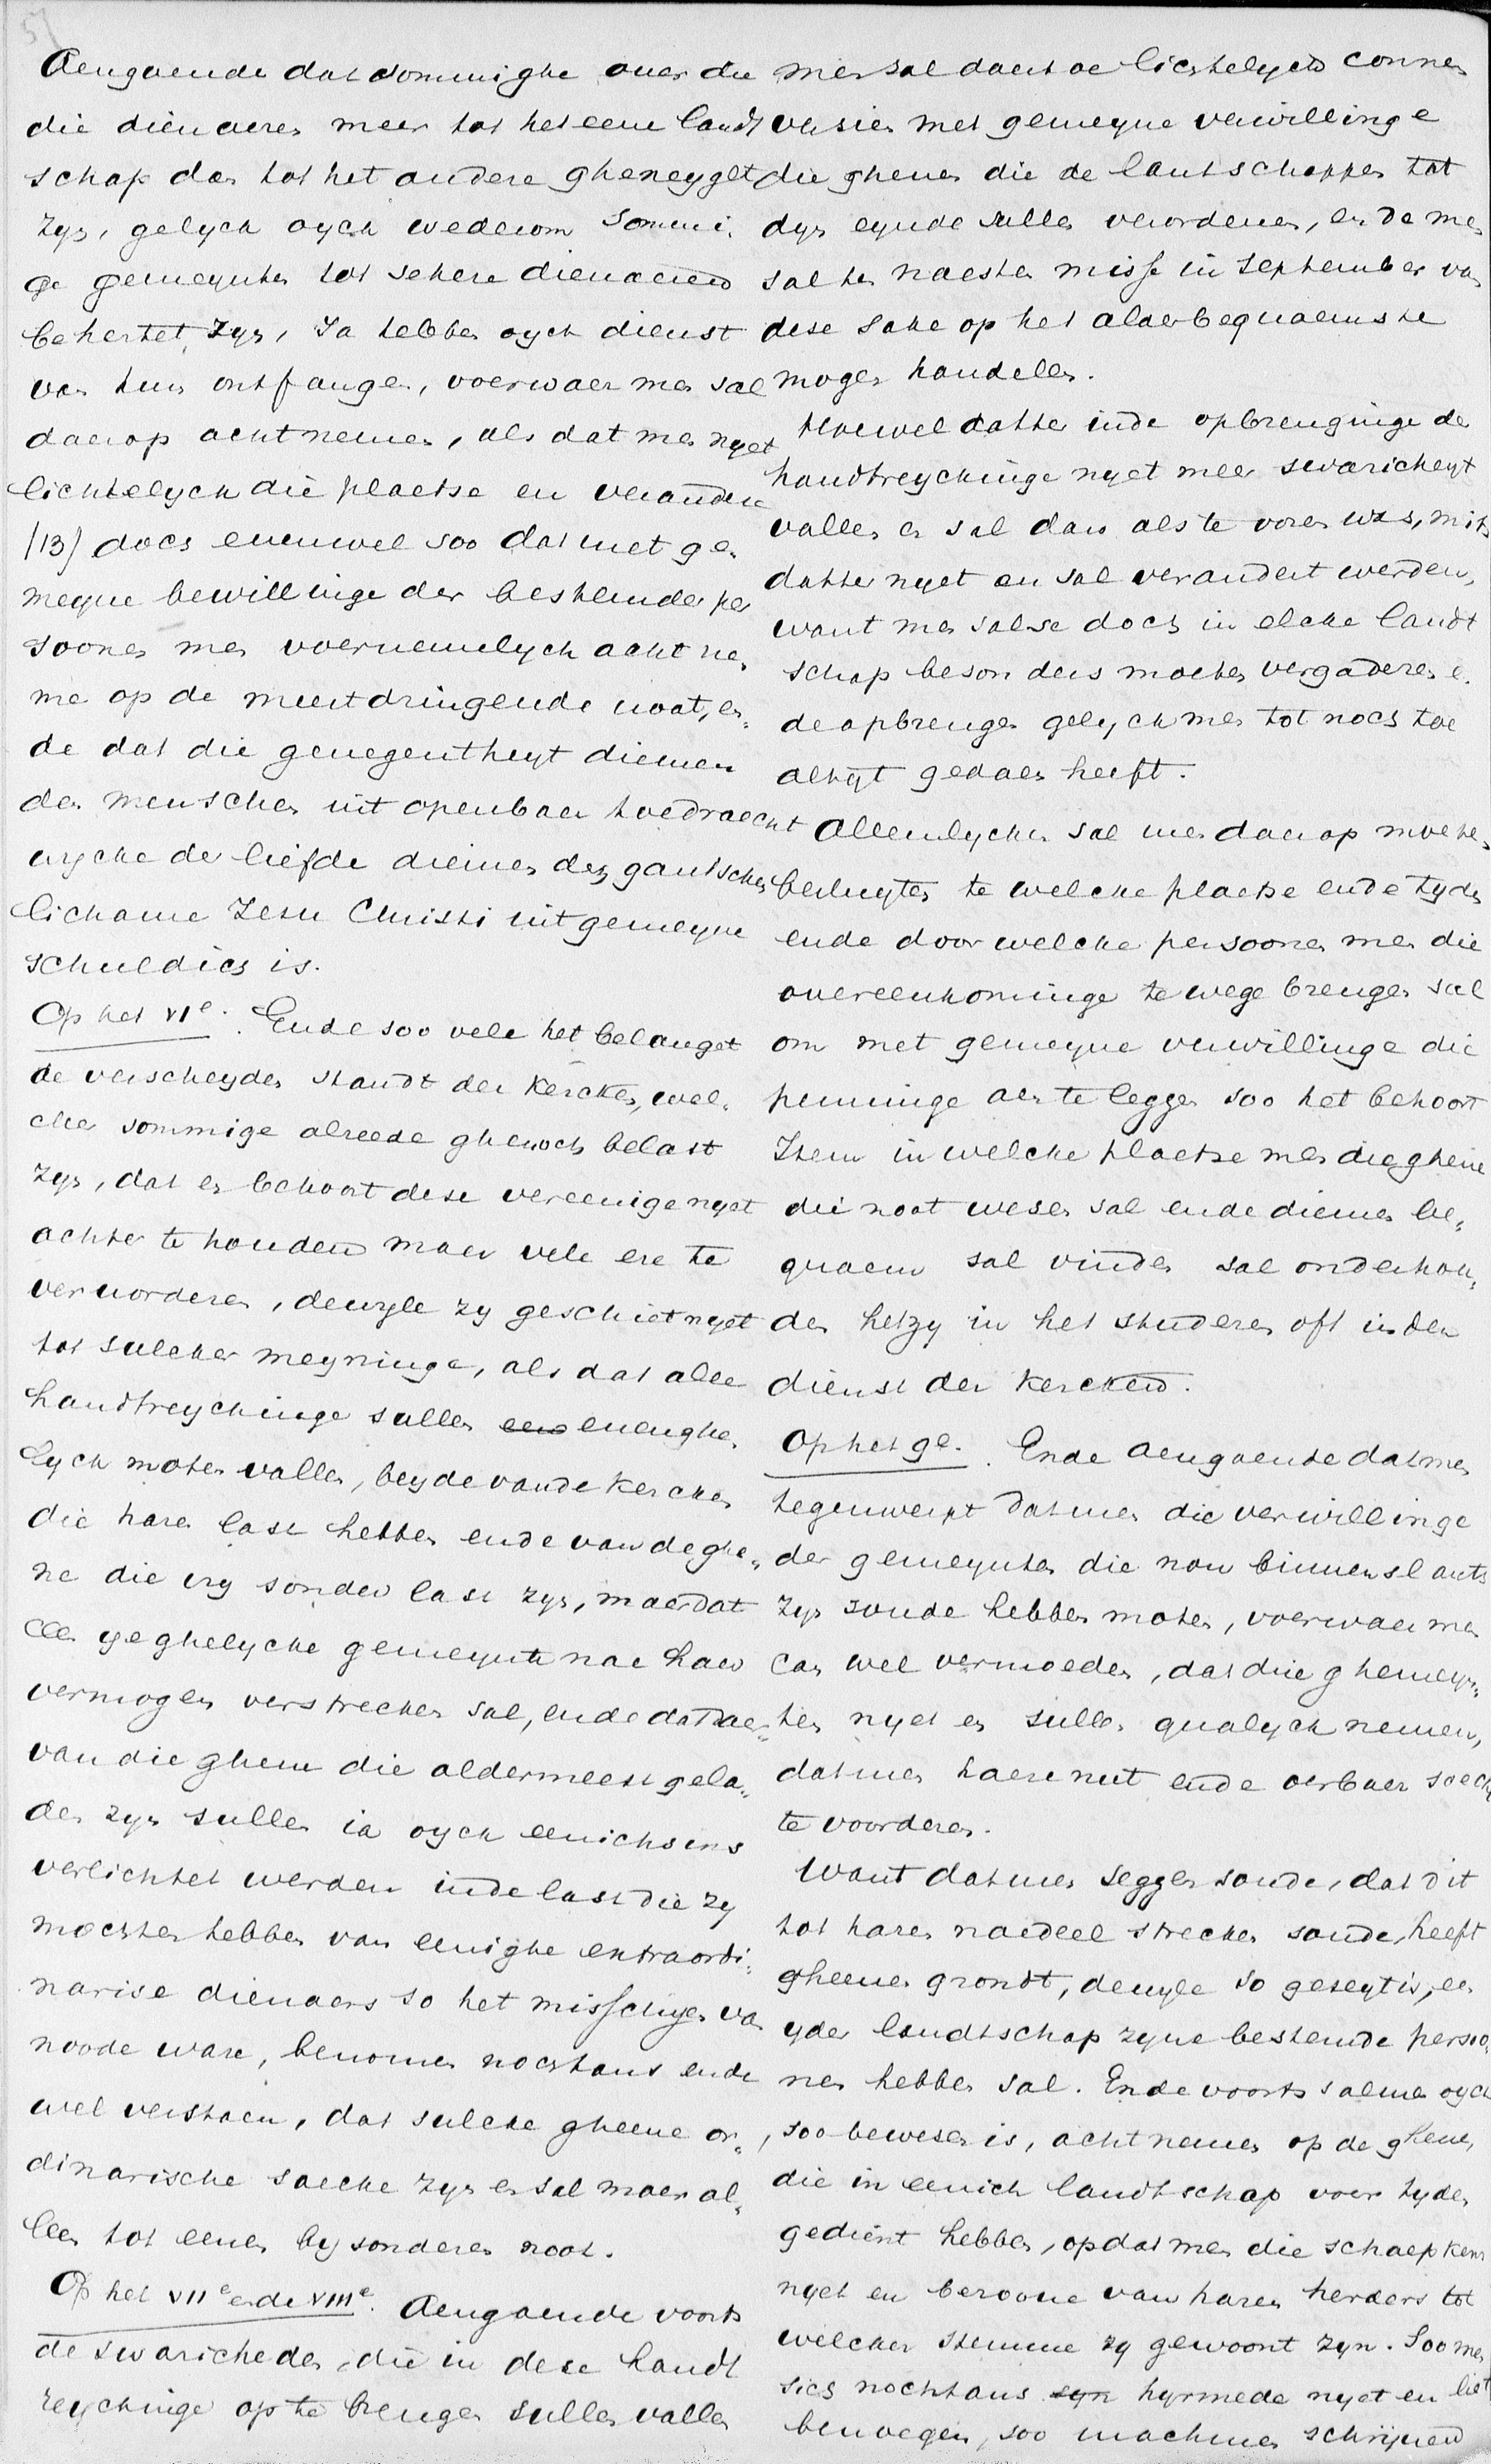 57
Aengaende dat sommighe over die
die dienaeren meer tot het eene landt
schap dan tot het andere gheneyget
zyn, gelyck oyck wederom sommi.
ge gemeynten tot sekere dienaeren
behertet zyn, Ja hebben oyck dienst
van hun ontfangen, voerwaer men sal
daerop acht nemen, als dat men nyet
lichtelyck die plaetse en verandere
/13/ doch evenwel soo dat met ge.
meyne bewillinge der bestemder per
soonen men voernemelyck acht ne.
me op de meest dringende noot, en.
de dat die genegentheyt diemen
den menschen uit openbaer toedraecht
wycke de liefde diemen den gantschen
lichame Jesu Christi uit gemeyne
schuldich is.
Op het VIe. Ende soo vele het belanget
de verscheyden standt der Kercken, wel.
cker sommige alreede ghenoch belast
zyn, dat en behoort dese vereenige nyet
achter te houden maer vele ere te
vervorderen, dewyle zy geschiet nyet
tot sulcker meyninge, als dat alle
handtreyckinge sullen een evenghe.
lyck moten vallen, beyde vande Kercken
die haren last hebben ende van deghe.
ne die vry sonder last zyn, maer dat
een yeghelycke gemeynte nae haer
vermogen verstrecken sal, ende dat daer
van die ghene die aldermeest gela.
den zyn sullen ia oyck eenichsins
verlichtet werden inde last die zy
mochten hebben van eenighe extraordi.
narise dienaers so het misschyen van
noode ware, benomen nochtans ende
wel verstaen, dat sulcke gheene or.
dinarische saecke zyn en sal maer al.
leen tot eenen bysonderen noot.
Op het VIIe ende VIIIe. Aengaende voorts
de swaricheden, die in dese handt
reychinge op te brengen sullen vallen
men sal daertoe lichtelyck connen
versien met gemeyne verwillinge
die ghenen die de lantschappen tot
dyn eynde sullen verordenen, ende men
sal ten naesten misse in September van
dese sake op het alderbequaemste
mogen handelen.
Hoewel datter inde opbrenginge der
handtreyckinge nyet meer swaricheyt
vallen en sal dan als te voren was, mits
datter nyet en sal verandert werden,
want men salse doch in elcke landt
schap besonders moeten vergaderen e.
de opbrengen gelyck men tot noch toe
altyt gedaen heeft.
Alleenlycken sal men daerop moeten
besluyten te welcke plaetse ende tyden
ende door welcke persoonen men die
overeenkominge te wege brengen sal
om met gemeyne verwillinge die
penninge aen te leggen soo het behoort
Item in welcke plaetse men dieghene
die noot wesen sal ende diemen be.
quaem sal vinden sal onderhou.
den hetzy in het studeren oft in den
dienst der Kercken.
Op het 9e. Ende aengaende datmen
tegenwerpt datmen die verwillinge
der gemeynten die nou binnenslants
zyn soude hebben moten, voerwaer men
can wel vermoeden, dat die ghemeyn.
ten nyet en sullen qualyck nemen,
datmen haere nut ende oerbaer soeckt
te voorderen.
Want datmen seggen soude, dat dit
tot haren naedeel strecken soude, heeft
gheenen grondt, dewyle so geseyt is, een
yder landtschap zyne bestemde perso.
nen hebben sal. Ende voorts salmen oyck
, soo bewesen is, acht nemen op de ghene,
die in eenich landtschap voor tyden
gedient hebben, opdat men die schaepkens
nyet en beroove van haren herders tot
welcker stemme zy gewoont zyn. Soo men
sich nochtans syn hyrmede nyet en liet
benoegen, soo machmen schrijven